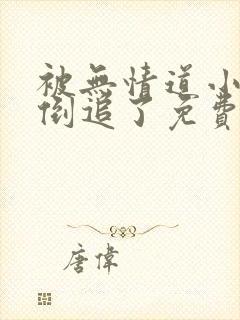 被無情道小
倒追了免費
唐偉